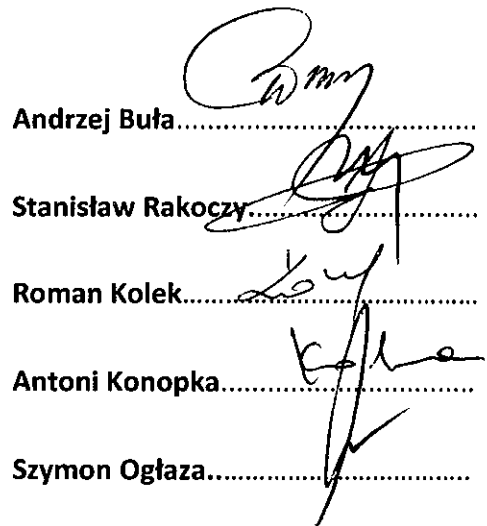 Andrzej Buła...............................................
Stanisław Rakoczy...................................
Roman Kolek.............................................
Antoni Konopka.......................................
Szymon Ogłaza.........................................